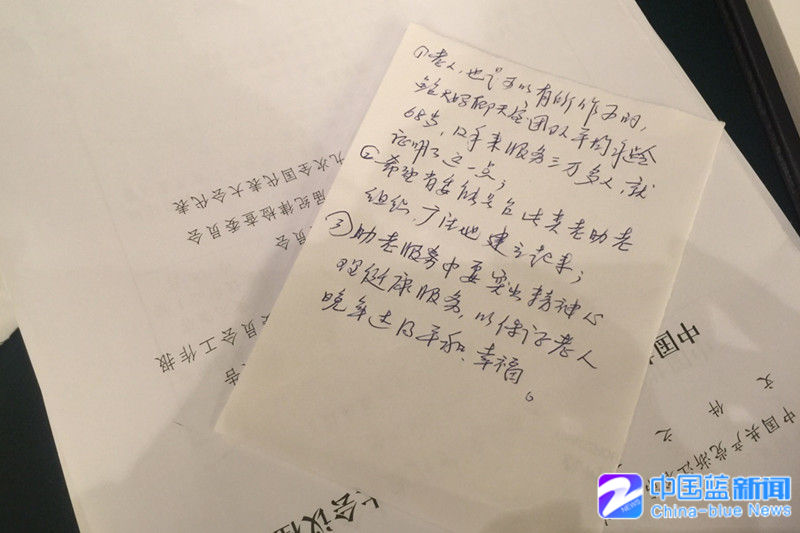 ①老人,也是可以有所作为的,
鲍大妈聊天室团队平均年龄
68岁,12年来服务三万多人,就
证明了这一点;
②希望省委 此类老助老
组织,广泛地建立起来;
③助老服务中要突出精神心
理健康服务,以保证老人
晚年过得平和、幸福。
九次全国代表大会代表
届纪律检查委员会
员会
委员会工作报
告
中国
文件之
中国共产党浙江
会议
中国蓝新闻
China-blue News
NEWS